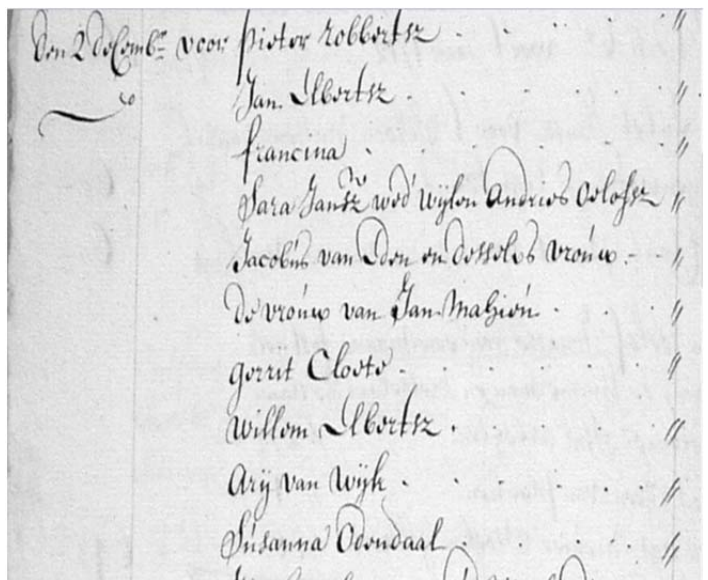 den 2 decemb.r voor Pieter Robbertsz "
Jan Elbertsz "
francina "
Sara Jansz wed.e wijlen Andries Oelofsz "
Jacobus van Eden en desselvs vrouw "
de vrouw van Jan Mahieu "
gerrit Cloete "
Willem Elbertsz "
Arij van Wijk "
Susanna Odendaal "